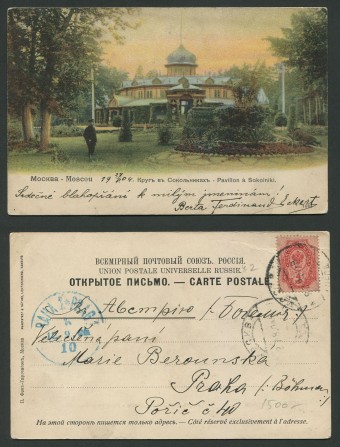 Москва - Moscou 19 04. Кругъ въ Сокольникахъ - Pavillon à Sokolniki.
Srdečné blahopřání k milým jmeninám!
Berta Ferdinand
ВСЕМІРНЫЙ ПОЧТОВЫЙ СОЮЗ. РОССІЯ.
UNION POSTALE UNIVERSELLE RUSSIE.
ОТКРЫТОЕ ПИСЬМО. — CARTE POSTALE
Австрію / Богемія /
Velectená paní
Marie Berounska
Praha (in Böhmen)
Poříč č 40
1500
10
На этой сторонѣ пишется только адресъ. — Côté réservé exclusivement à l'adresse.